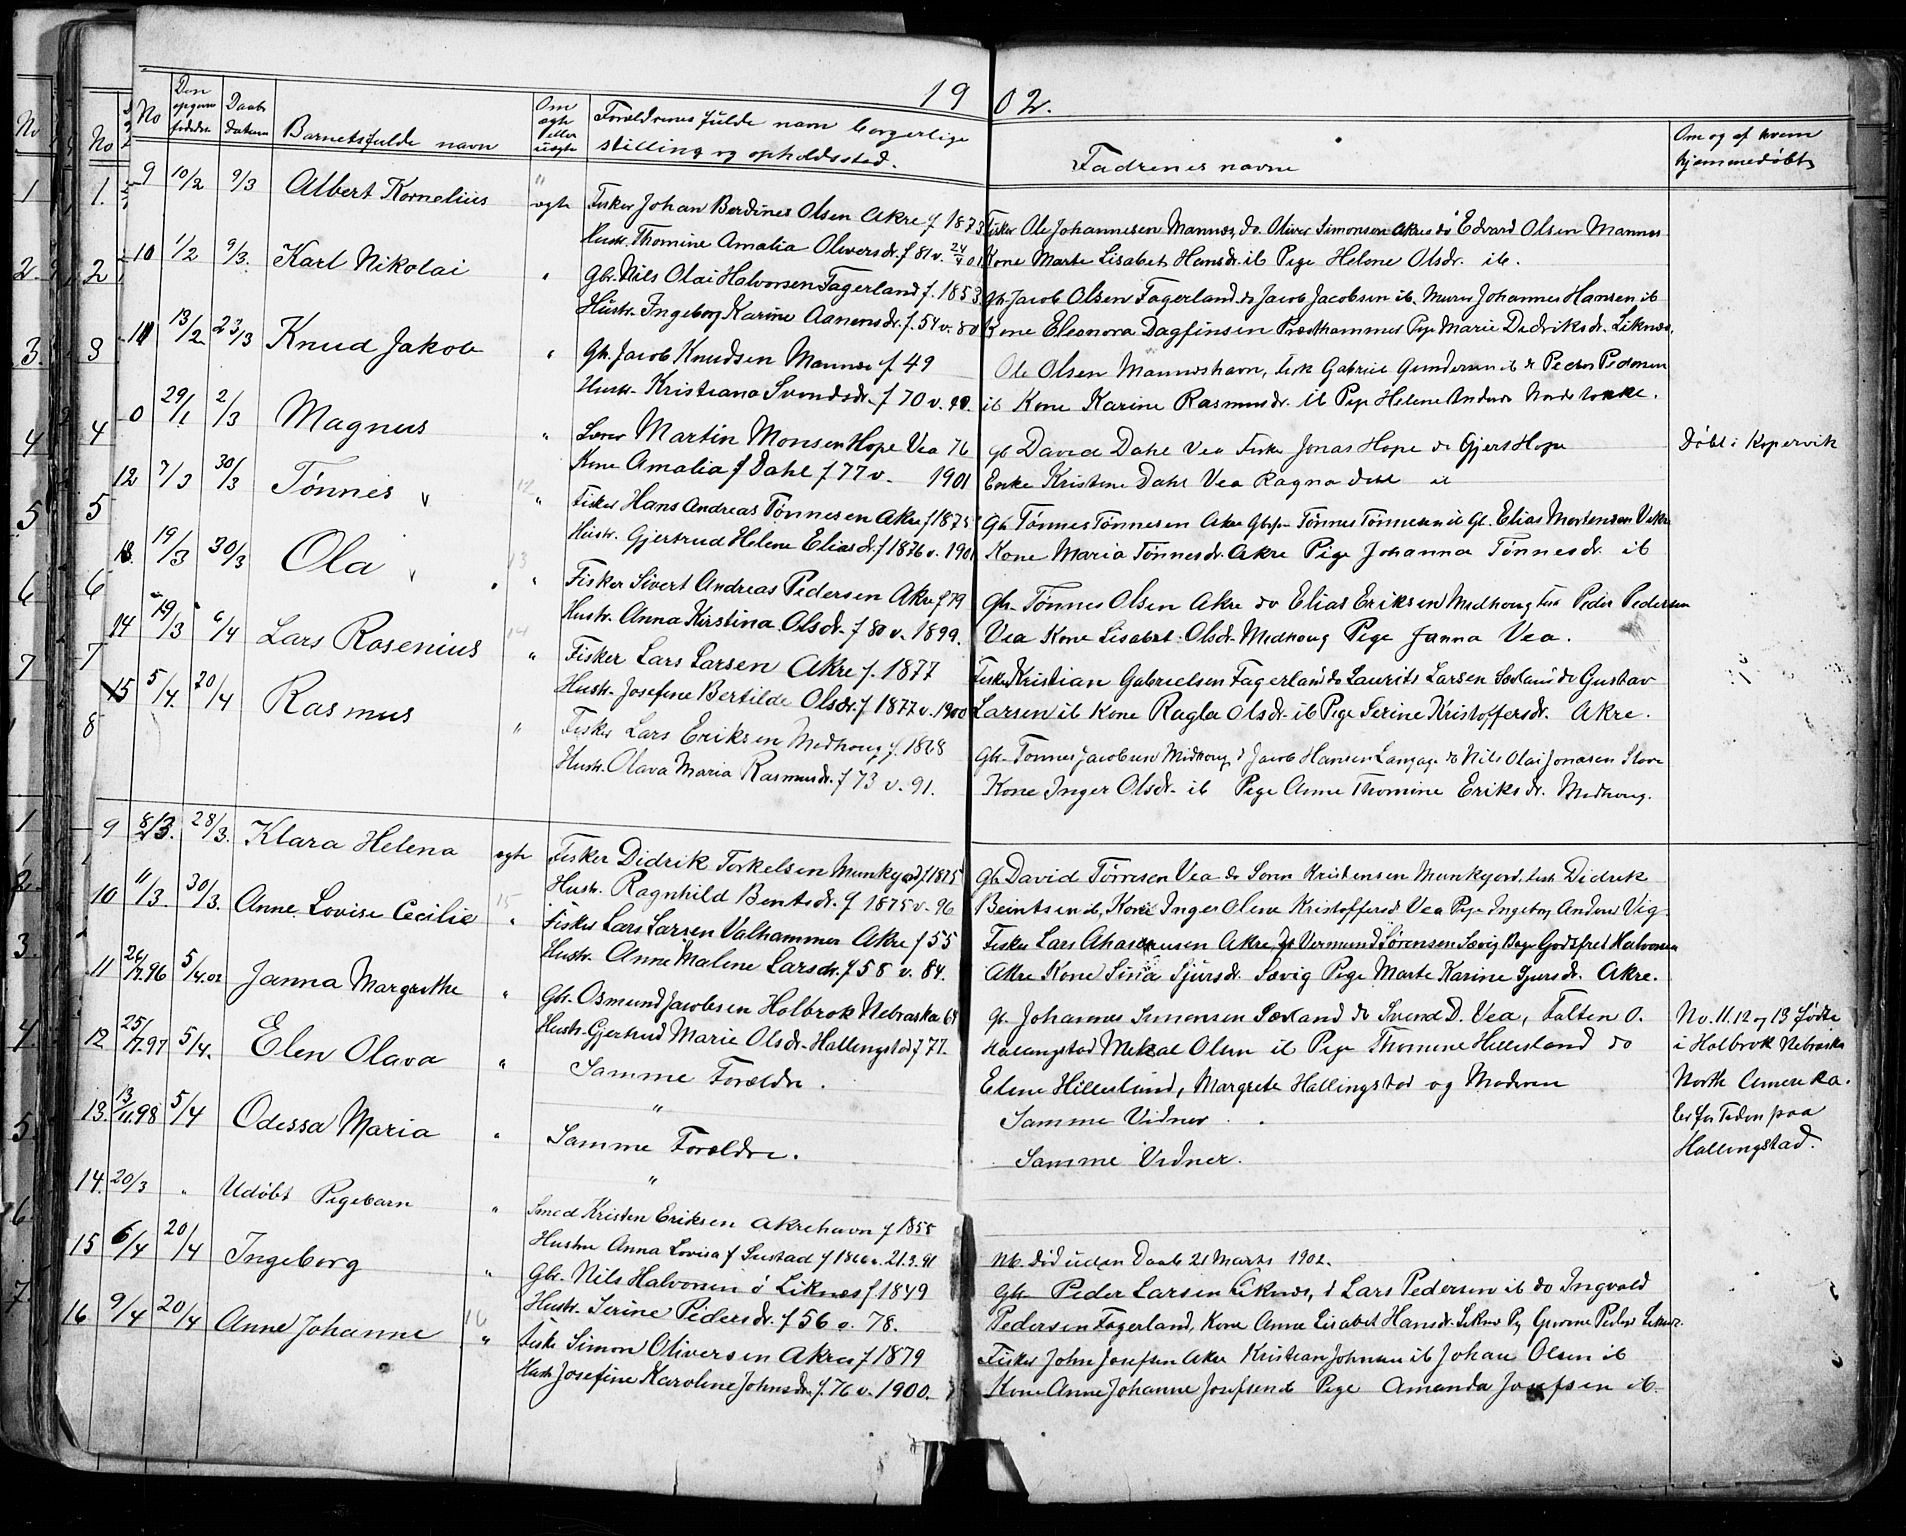 1902.
No
Den opgivne fødedato
Daabs datum
Barnets fulde navn
Om ægte eller uægte
Forældrenes fulde navn borgerlige
stilling og opholdssted.
Fadrenes navne
Om og af hvem
hjemmedøbt
9 10/2 9/3 Albert Kornelius ægte Fisker Johan Berdines Olsen Akre f 1873
Hustr. Thomine Amalia Oliversdr. f 81 v. 24/4 01
Fisker Ole Johannesen Mannes, do Oliver Simonsen Akre do Edvard Olsen Mannes
Kone Marte Lisabet Hansdr. ib Pige Helene Olsdr. ib.
10 1/2 9/3. Karl Nikolai " Gbr. Nils Olai Halvorsen Fagerland f. 1853
Hustr. Ingeborg Karine Aanensdr. f. 54 v. 80
Gbr. Jacob Olsen Fagerland do Jacob Jacobsen ib. Murer Johannes Hansen ib
Kone Eleonora Dagfinsen Præsthammer Pige Marie Didriksdr. Liknes.
11 13/2 23/3 Knud Jakob " Gbr. Jacob Knudsen Mannes f 49
Hustr. Kristiana Svendsdr. f 70 v. 90.
Ole Olsen Manneshavn, Fisk Gabriel Gundersen ib do Peder Pedersen
ib Kone Karine Rasmusdr. ib Pige Helene Anders
0 29/1 2/3 Magnus " Lærer Martin Monsen Hope Vea 76
Kone Amalia f Dahl f 77 v. 1901
Gb David Dahl Vea Fisker Jonas Hope do Gjert Hope
Enke Kristine Dahl Vea Ragna Dahl ib
Døbt i Kopervik
12 7/3 30/3 Tønnes v 12 " Fisker Hans Andreas Tønnesen Akre f 1875
Hustr. Gjertrud Helene Eliasdr. f 1876 v. 1901
Gbr Tønnes Tønnesen Akre Tønnes Tønnesen ib Gb. Elias Mortensen
Kone Maria Tønnesdr. Akre Pige Johanna Tønnesdr. ib
13. 19/3 30/3 Ola v 13 " Fisker Sivert Andreas Pedersen Akre f 79
Hustr. Anna Kirstina Olsdr. f 80 v. 1899.
Gbr. Tønnes Olsen Akre do Elias Eriksen Medhoug Fisk Peder Pedersen
Vea Kone Lisabet Olsdr. Medhoug Pige Janna Vea.
14 19/3 6/4 Lars Rosenius 14 " Fisker Lars Larsen Akre f. 1877
Hustr. Josefine Bertilde Olsdr. f 1877 v. 1900
Fisker Kristian Gabrielsen Fagerland do Laurits Larsen Sævland do Gustav
Larsen ib Kone Ragla Olsdr. ib Pige Serine Kristoffersdr. Akre.
15 5/4. 20/4 Rasmus " Fisker Lars Eriksen Medhoug f. 1868
Hustr. Olava Maria Rasmusdr. f 73 v. 91.
Gbr. Tønnes Jacobsen Medhoug, d Jacob Hansen do Nils Olai Jonasen
Kone Inger Olsdr. ib Pige Anne Thomine Eriksdr. Medhoug.
9 8/3. 28/3. Klara Helena ægte Fisker Didrik Torkelsen Munkejord f 1875
Hustr. Ragnhild Bentsdr. f 1875 v. 96
Gbr David Tønnesen Vea do Sønn Kristensen Munkejord, Fisk Didrik
Beintsen ib, Kone Inger Olene Kristoffersdr Vea Pige Ingeborg Anders Vig.
10 11/3. 30/3. Anne Lovise Cecilie 15 " Fisker Lars Larsen Valhammer Akre f 55
Hustr. Anne Malene Larsdr. f 58 v. 84.
Fisker Lars Ahasenusen Akre do Vermund Sørensen Sævig Godtfred Halvorsen
Akre Kone Sina Sjursdr. Sævig Pige Marte Karine Sjursdr. Akre.
11 26/7.96 5/4.02 Janna Margrethe " Gbr. Osmund Jacobsen Holbrok Nebraska 64
Hustr. Gjertrud Marie Olsdr. Hallingstad f 77.
Gb. Johannes Simonsen Sævland do Svend D. Vea, Falten O.
Hallingstad Mikal Olsen ib Pige Thomine Hillesland do
Elene Hillesland, Margrete Hallingstad og Moderen
No. 11. 12 og 13 fødte
i Holbrok Nebraska
North Amerika.
er for Tiden paa
Hallingstad.
12 25/7.97 5/4. Elen Olava " Samme Forældre.
"
Samme Vidner.
13. 13/11.98 5/4 Odessa Maria " Samme Forældre.
"
Samme Vidner.
14. 20/3 " Udøbt Pigebarn " Smed Kristen Eriksen Akrehavn f 1855
Hustru Anna Lovisa f Sustad f 1866 v. 21.3.91
Nb. død uden Daab 21 Marts 1902.
15 6/4 20/4 Ingeborg " Gbr. Nils Halvorsen ø Liknes f 1849
Hustr. Serine Pedersdr. f 56 v. 78.
Gbr. Peder Larsen Liknes, d Lars Pedersen ib do Ingvald
Pedersen Fagerland, Kone Anne Lisabet Hansdr. Liknes
16 9/4 20/4 Anne Johanne 16 " Fisker Simon Oliversen Akre f 1879
Hustr Josefine Karoline Johnsdr. f. 76 v. 1900.
Fisker John Josefsen Akre Kristian Johnsen ib Johan Olsen ib
Kone Anne Johanne Josefsen ib Pige Amanda Josefsen ib.